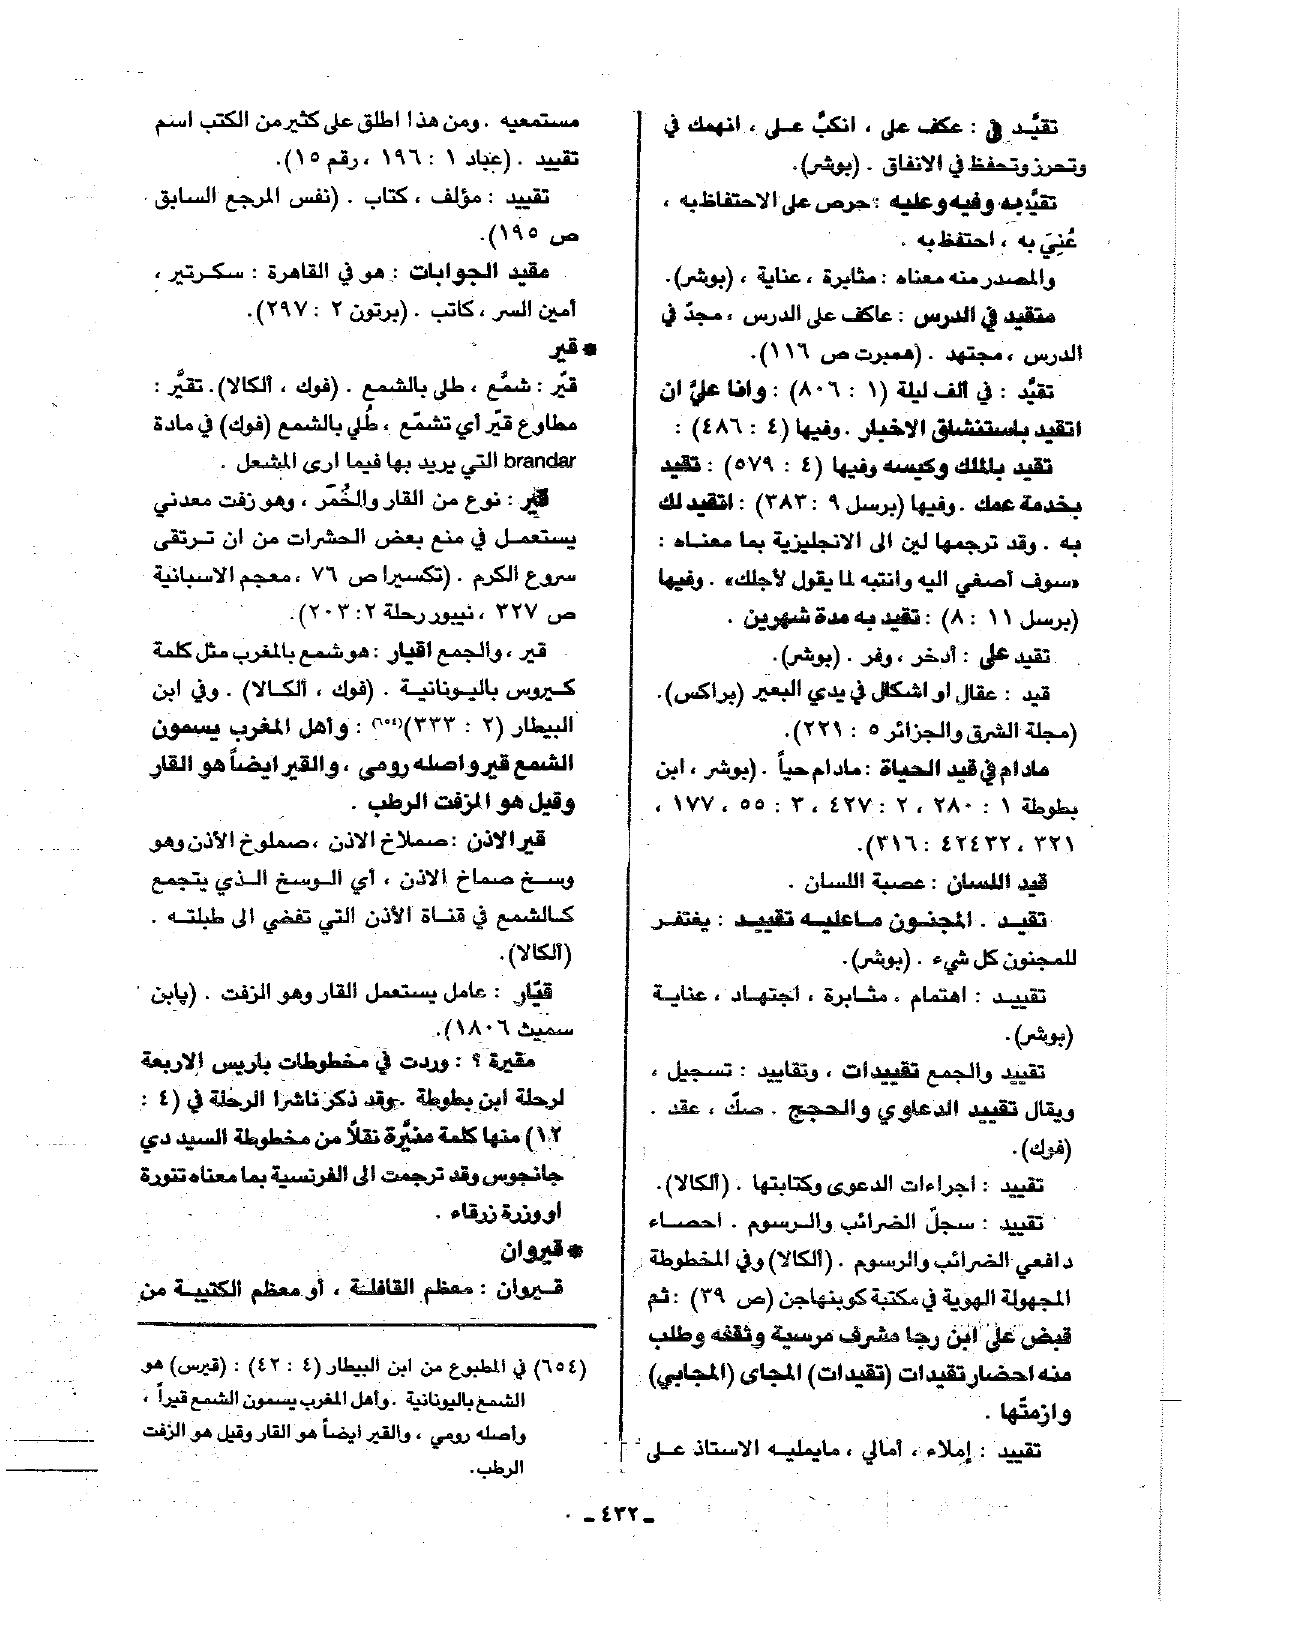 تقيَّد في : عكف على ، انكبَّ على ، انهمك في
وتحرز وتحفظ في الانفاق . (بوشر).
تقيَّد به وفيه وعليه : حرص على الاحتفاظ به ،
عُنِيَ به ، احتفظ به .
والمصدر منه معناه : مثابرة ، عناية ، (بوشر).
متقيد في الدرس : عاكف على الدرس ، مجدّ في
الدرس ، مجتهد . (همبرت ص ١١٦).
تقيَّد : في ألف ليلة (١ : ٨٠٦) : وانا عليَّ ان
اتقيد باستنشاق الاخبار . وفيها (٤ : ٤٨٦) :
تقيد بالملك وكيسه وفيها (٤ : ٥٧٩) : تقيد
بخدمة عمك . وفيها (برسل ٩ : ٣٨٣) : اتقيد لك
به . وقد ترجمها لين الى الانجليزية بما معناه :
«سوف أصغي اليه وانتبه لما يقول لأجلك» . وفيها
(برسل ١١ : ٨) : تقيد به مدة شهرين .
تقيد على : أدخر ، وفر . (بوشر).
قيد : عقال او اشكال في يدي البعير (براكس).
(مجلة الشرق والجزائر ٥ : ٢٢١).
مادام في قيد الحياة : مادام حياً . (بوشر ، ابن
بطوطة ١ : ٢٨٠ ، ٢ : ٤٢٧ ، ٣ : ٥٥ ، ١٧٧ ،
٣٢١ ، ٤٢٤٣٢ : ٣١٦).
قيد اللسان : عصبة اللسان .
تقيد . المجنون ماعليه تقييد : يغتفر
للمجنون كل شيء . (بوشر).
تقييد : اهتمام ، مثابرة ، اجتهاد ، عناية
(بوشر).
تقييد والجمع تقييدات ، وتقاييد : تسجيل ،
ويقال تقييد الدعاوي والحجج . صكّ ، عقد .
(فوك).
تقييد : اجراءات الدعوى وكتابتها . (ألكالا).
تقييد : سجلّ الضرائب والرسوم . احصاء
دافعي الضرائب والرسوم . (ألكالا) وفي المخطوطة
المجهولة الهوية في مكتبة كوبنهاجن (ص ٣٩) : ثم
قبض على ابن رجا مشرف مرسية وثقفه وطلب
منه احضار تقيدات (تقيدات) المجاى (المجابي)
وازمتّها .
تقييد : إملاء ، أمالي ، مايمليه الاستاذ على
مستمعيه . ومن هذا اطلق على كثير من الكتب اسم
تقييد . (عباد ١ : ١٩٦ ، رقم ١٥).
تقييد : مؤلف ، كتاب . (نفس المرجع السابق
ص ١٩٥).
مقيد الجوابات : هو في القاهرة : سكرتير ،
أمين السر ، كاتب . (برتون ٢ : ٢٩٧).
* قير
قيّر : شمَّع ، طلى بالشمع . (فوك ، ألكالا). تقيَّر :
مطاوع قيّر أي تشمّع ، طُلي بالشمع (فوك) في مادة
brandar التي يريد بها فيما ارى المشعل .
قير : نوع من القار والخُمَّر ، وهو زفت معدني
يستعمل في منع بعض الحشرات من ان ترتقى
سروع الكرم . (تكسيرا ص ٧٦ ، معجم الاسبانية
ص ٣٢٧ ، نيبور رحلة ٢ : ٢٠٣).
قير ، والجمع اقيار : هو شمع بالمغرب مثل كلمة
كيروس باليونانية . (فوك ، ألكالا) . وفي ابن
البيطار (٢ : ٣٣٣)(٦٥٤) : وأهل المغرب يسمون
الشمع قير واصله رومي ، والقير ايضاً هو القار
وقيل هو المزفت الرطب .
قير الاذن : صملاخ الاذن ، صملوخ الأذن وهو
وسخ صماخ الاذن ، أي الوسخ الذي يتجمع
كالشمع في قناة الأذن التي تفضي الى طبلته .
(ألكالا).
قيّار : عامل يستعمل القار وهو الزفت . (پابن
سميث ١٨٠٦).
مقيرة ؟ : وردت في مخطوطات باريس الاربعة
لرحلة ابن بطوطة . وقد ذكر ناشرا الرحلة في (٤ :
١٢) منها كلمة منيَّرة نقلاً من مخطوطة السيد دي
جانجوس وقد ترجمت الى الفرنسية بما معناه تنورة
او وزرة زرقاء .
* قيروان
قيروان : معظم القافلة ، أو معظم الكتيبة من
(٦٥٤) في المطبوع من ابن البيطار (٤ : ٤٢) : (قيرس) هو
الشمع باليونانية . وأهل المغرب يسمون الشمع قيراً ،
وأصله رومي ، والقير ايضاً هو القار وقيل هو الزفت
الرطب .
ـ ٤٣٢ ـ